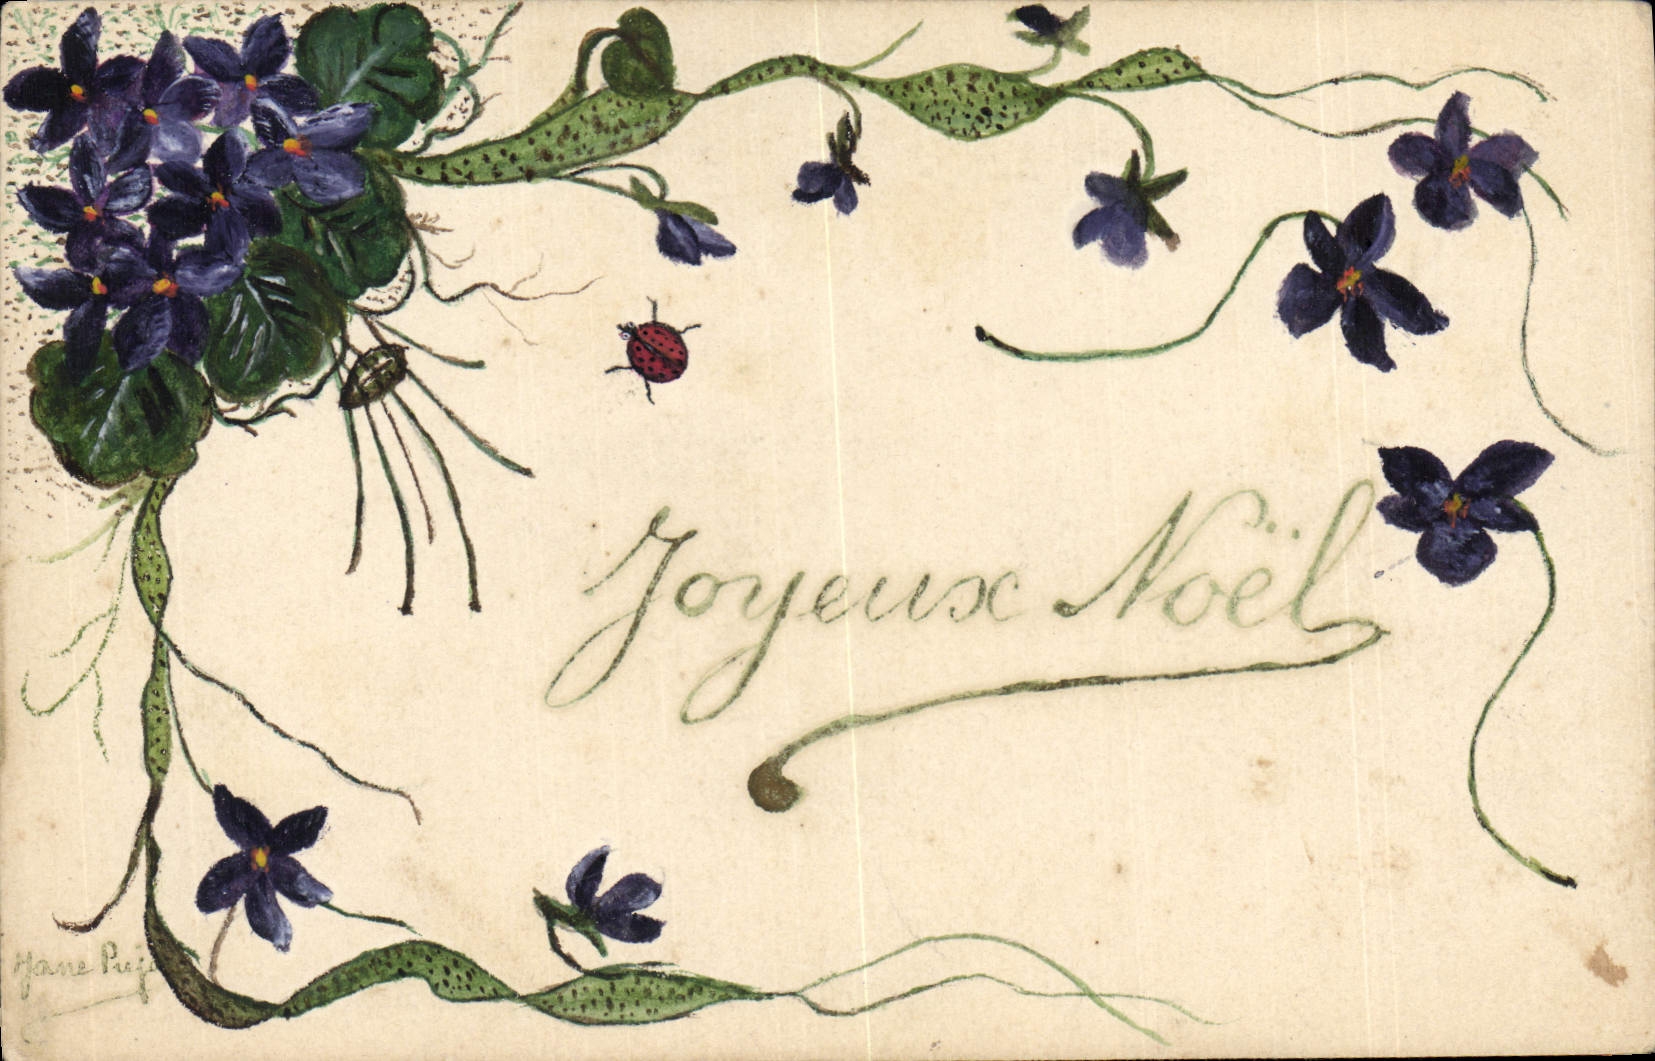 Joyeux Noël
Jane